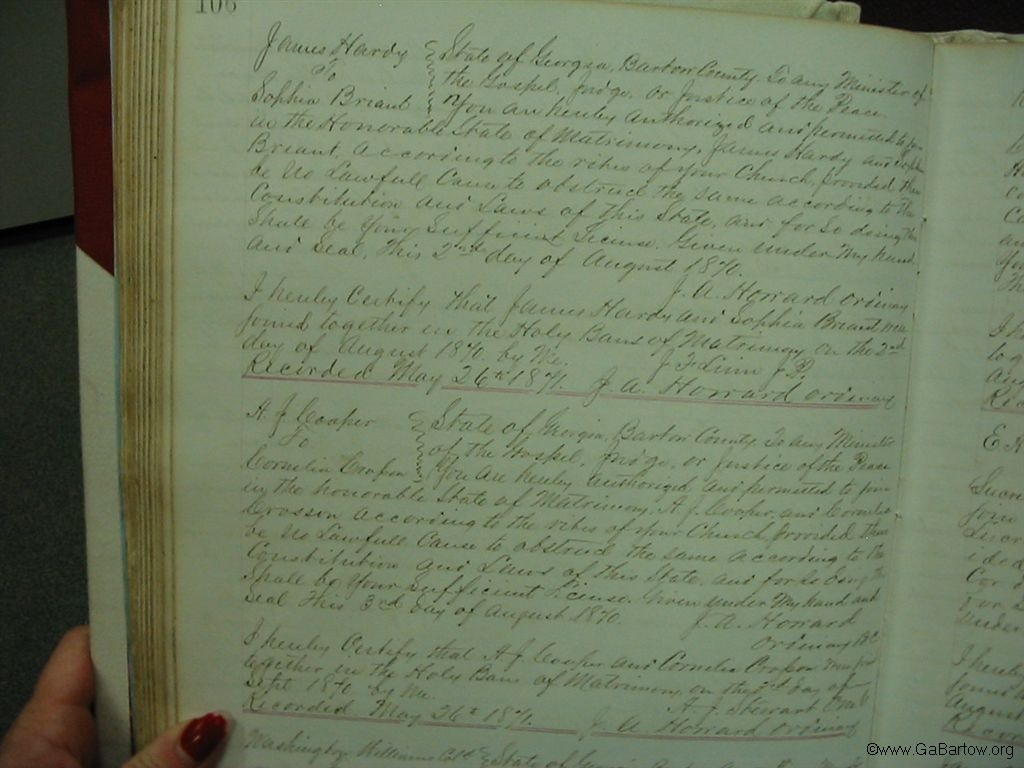 106
James Hardy State of Georgia, Bartow County To any Minister of
To the Gospel, Judge, or Justice of the Peace.
Sophia Briant You are hereby authorized and permitted to join
in the Honorable State of Matrimony, James Hardy and Sophia
Briant, according to the rites of your Church, provided there
be No Lawfull Cause to obstruct the same according to the
Constitution and Laws of this State, and for So doing this
Shall be Your Sufficient License. Given under My hand
and Seal, this 2nd day of August 1870.
J. A. Howard ordinary
I hereby Certify that James Hardy and Sophia Briant were
joined together in the Holy Bans of Matrimony on the 2nd
day of August 1870 by Me. J F Linn J.P.
Recorded May 26th 1871. J. A. Howard ordinary
A J Cooper State of Georgia, Bartow County To any Minister
To of the Gospel, Judge, or Justice of the Peace
Cornelia You are hereby authorized and permitted to join
in the honorable State of Matrimony, A J Cooper, and Cornelia
according to the rites of your Church, provided there
be No Lawfull Cause to obstruct the same according to the
Constitution and Laws of this State, and for So doing this
Shall be Your Sufficient License. Given under My hand and
Seal This 3rd day of August 1870. J. A. Howard
ordinary B.C.
I hereby Certify that A J Cooper and Cornelia were
together in the Holy Bans of Matrimony, on the day of
Sept 1870 by Me. A. J. Stewart
Recorded May 26th 1871. J A Howard ordinary
Washington Williams Cold State of
E.
©www.GaBartow.org